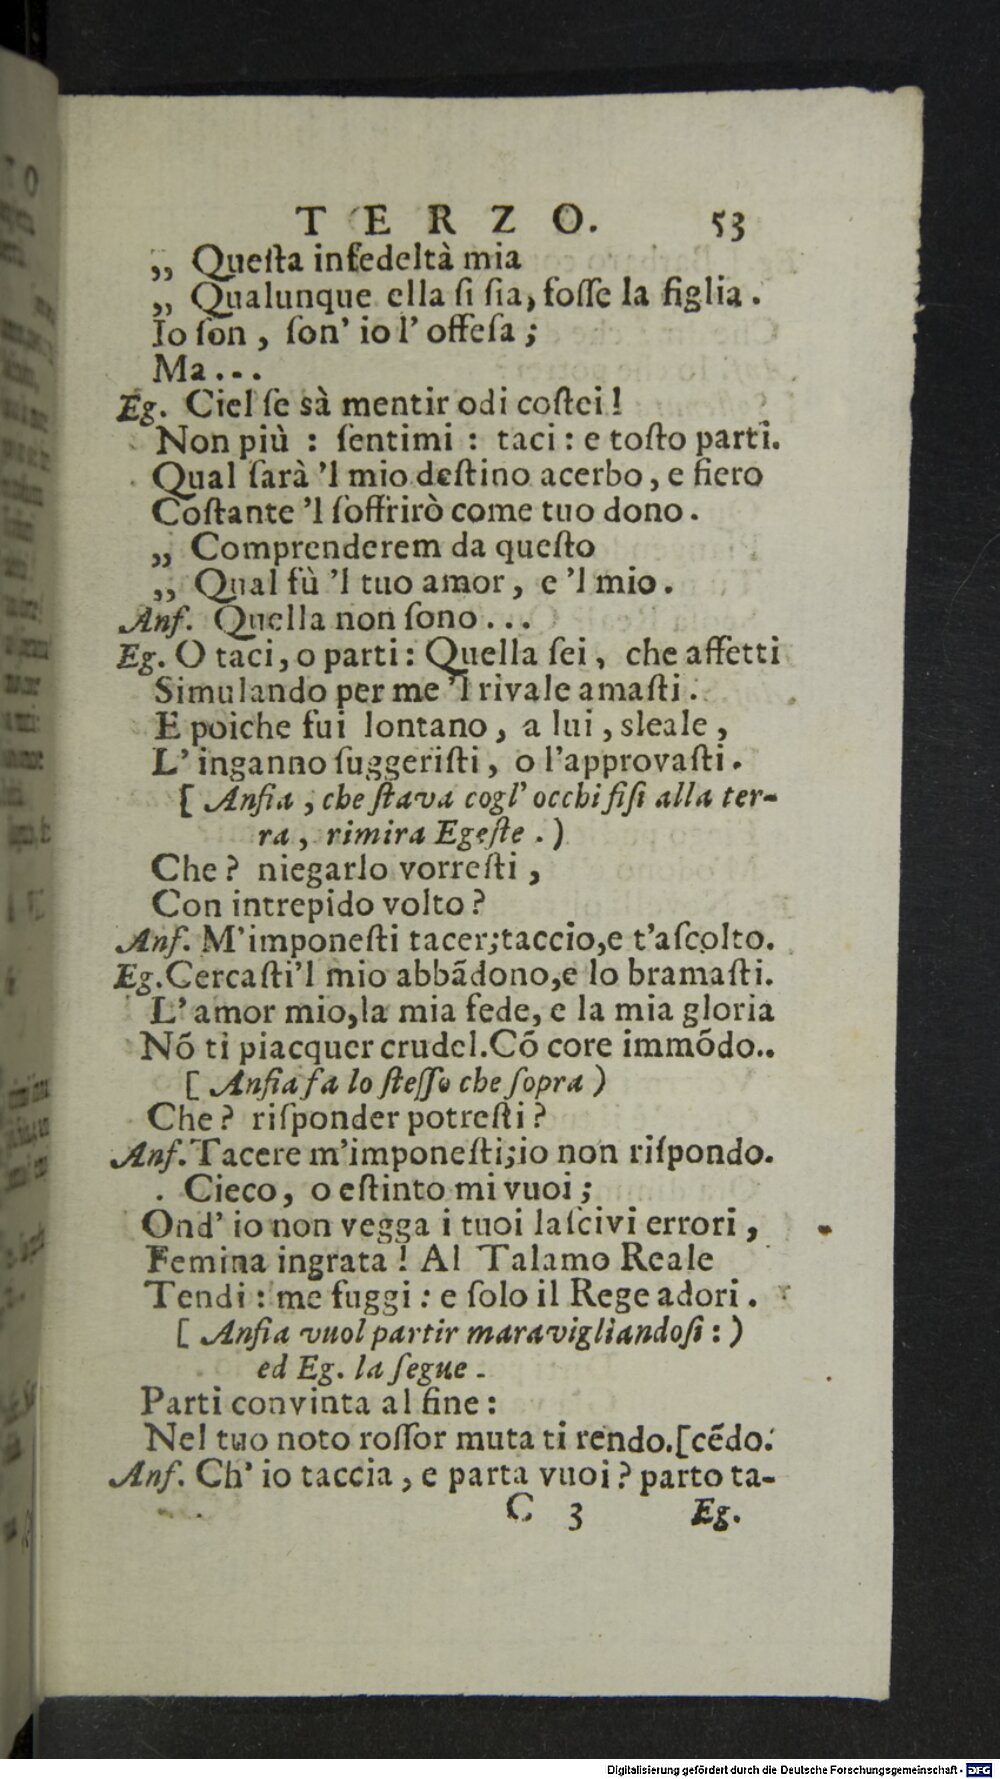 TERZO. 53
„ Queſta infedeltà mia
„ Qualunque ella ſi ſia, foſſe la figlia.
Io ſon, ſon' io l' offeſa;
Ma...
Eg. Ciel ſe sà mentir odi coſtei!
Non più : ſentimi : taci : e toſto parti.
Qual ſarà 'l mio deſtino acerbo, e fiero
Coſtante 'l ſoffrirò come tuo dono.
„ Comprenderem da queſto
„ Qual fù 'l tuo amor, e 'l mio.
Anf. Quella non ſono...
Eg. O taci, o parti: Quella ſei, che affetti
Simulando per me 'l rivale amaſti.
E poiche fui lontano, a lui, sleale,
L' inganno ſuggeriſti, o l'approvaſti.
[ Anfia, che ſtava cogl' occhi fiſi alla ter-
ra, rimira Egeſte. )
Che? niegarlo vorreſti,
Con intrepido volto?
Anf. M'imponeſti tacer;taccio,e t'aſcolto.
Eg.Cercaſti'l mio abbãdono,e lo bramaſti.
L' amor mio,la mia fede, e la mia gloria
Nõ ti piacquer crudel.Cõ core immõdo..
[ Anfia fa lo ſteſſo che ſopra )
Che? riſponder potreſti?
Anf. Tacere m'imponeſti;io non riſpondo.
. Cieco, o eſtinto mi vuoi;
Ond' io non vegga i tuoi laſcivi errori,
Femina ingrata! Al Talamo Reale
Tendi : me fuggi : e ſolo il Rege adori.
[ Anfia vuol partir maravigliandoſi : )
ed Eg. la ſegue.
Parti convinta al fine:
Nel tuo noto roſſor muta ti rendo.[cẽdo.
Anf. Ch' io taccia, e parta vuoi? parto ta-
C 3 Eg.
Digitalisierung gefördert durch die Deutsche Forschungsgemeinschaft - DFG